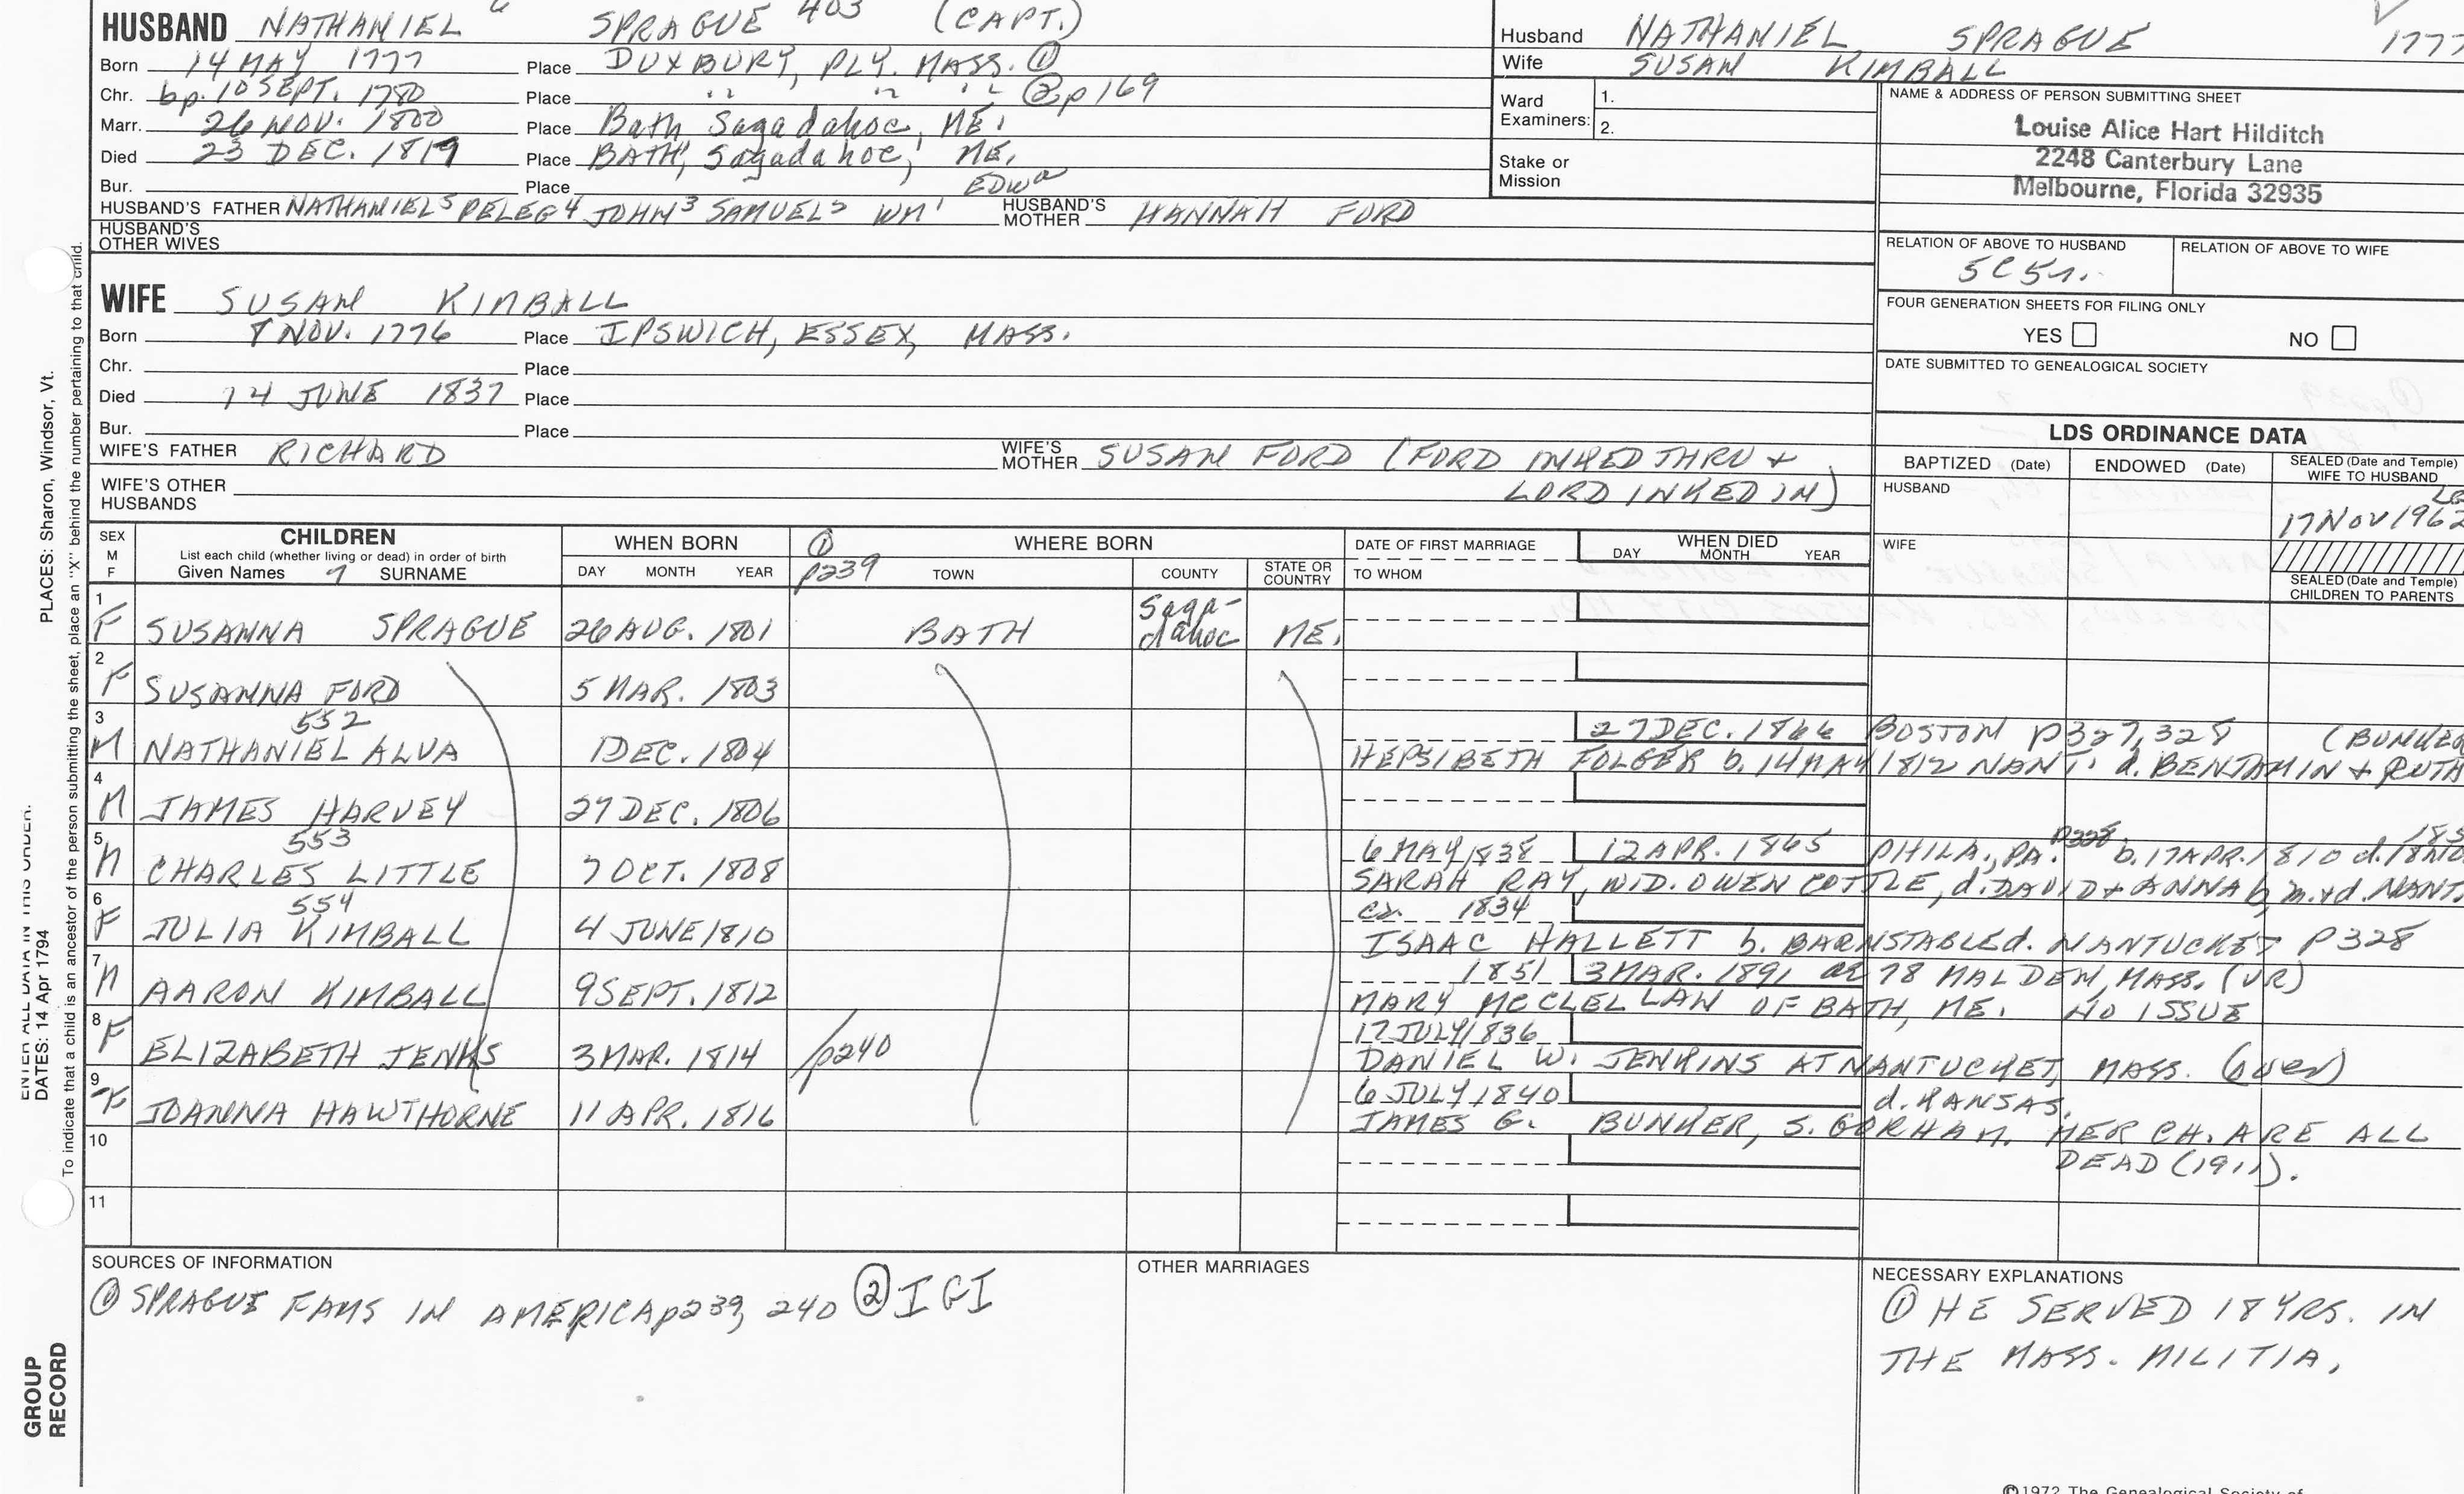 HUSBAND NATHANIEL 6 SPRAGUE 403 (CAPT.)
Born 14 MAY 1777 Place DUXBURY, PLY. MASS. ①
Chr. bp. 10 SEPT. 1780 Place " " " ② p 169
Marr. 26 NOV. 1800 Place Bath Sagadahoc, ME.
Died 23 DEC. 1819 Place BATH, Sagadahoc, ME.
Bur. Place
HUSBAND'S FATHER NATHANIEL5 PELEG4 JOHN3 SAMUEL2 WM1 EDWd HUSBAND'S MOTHER HANNAH FORD
HUSBAND'S OTHER WIVES
Husband NATHANIEL SPRAGUE 1777
Wife SUSAN KIMBALL
Ward Examiners: 1.
2.
Stake or Mission
NAME & ADDRESS OF PERSON SUBMITTING SHEET
Louise Alice Hart Hilditch
2248 Canterbury Lane
Melbourne, Florida 32935
RELATION OF ABOVE TO HUSBAND RELATION OF ABOVE TO WIFE
5C5r.
FOUR GENERATION SHEETS FOR FILING ONLY
YES NO
DATE SUBMITTED TO GENEALOGICAL SOCIETY
WIFE SUSAN KIMBALL
Born 8 NOV. 1776 Place IPSWICH, ESSEX, MASS.
Chr. Place
Died 14 JUNE 1837 Place
Bur. Place
WIFE'S FATHER RICHARD WIFE'S MOTHER SUSAN FORD (FORD INKED THRU +
LORD INKED IN)
WIFE'S OTHER HUSBANDS
LDS ORDINANCE DATA
BAPTIZED (Date) ENDOWED (Date) SEALED (Date and Temple) WIFE TO HUSBAND
HUSBAND
17 NOV 1962
WIFE
SEALED (Date and Temple) CHILDREN TO PARENTS
SEX M F
CHILDREN
List each child (whether living or dead) in order of birth
Given Names 7 SURNAME
WHEN BORN
DAY MONTH YEAR
① p239
WHERE BORN
TOWN COUNTY STATE OR COUNTRY
DATE OF FIRST MARRIAGE
TO WHOM
WHEN DIED
DAY MONTH YEAR
1 F SUSANNA SPRAGUE 26 AUG. 1801 BATH Saga-dahoc ME.
2 F SUSANNA FORD 5 MAR. 1803
552
3 M NATHANIEL ALVA 1 DEC. 1804 27 DEC. 1866 BOSTON p327, 328 (BUNKER
HEPSIBETH FOLGER b. 14 MAY 1812 NANT. d. BENJAMIN + RUTH
4 M JAMES HARVEY 27 DEC. 1806
553
5 M CHARLES LITTLE 7 OCT. 1808 6 MAY 1838 12 APR. 1865 PHILA., PA. p328 b. 17 APR. 1810
SARAH RAY, WID. OWEN COTTLE, d. DAVID + ANNA b, m. + d. NANT.
554
6 F JULIA KIMBALL 4 JUNE 1810 ca. 1834
ISAAC HALLETT b. BARNSTABLE d. NANTUCKET P 328
7 M AARON KIMBALL 9 SEPT. 1812 1851 3 MAR. 1891 ae 78 MALDEN, MASS. (VR)
MARY MCCLELLAN OF BATH, ME. NO ISSUE
8 F ELIZABETH JENKS 3 MAR. 1814 p240 17 JULY 1836
DANIEL W. JENKINS AT NANTUCKET, MASS. (over)
9 F JOANNA HAWTHORNE 11 APR. 1816 6 JULY 1840 d. KANSAS.
JAMES G. BUNKER, S. GORHAM. HER CH. ARE ALL
DEAD (1911).
10
11
SOURCES OF INFORMATION
① SPRAGUE FAMS IN AMERICA p239, 240 ② IGI
OTHER MARRIAGES
NECESSARY EXPLANATIONS
① HE SERVED 18 YRS. IN
THE MASS. MILITIA.
PLACES: Sharon, Windsor, Vt.
ENTER ALL DATA IN THIS ORDER:
DATES: 14 Apr 1794
To indicate that a child is an ancestor of the person submitting the sheet, place an "X" behind the number pertaining to that child.
GROUP RECORD
©1972 The Genealogical Society of